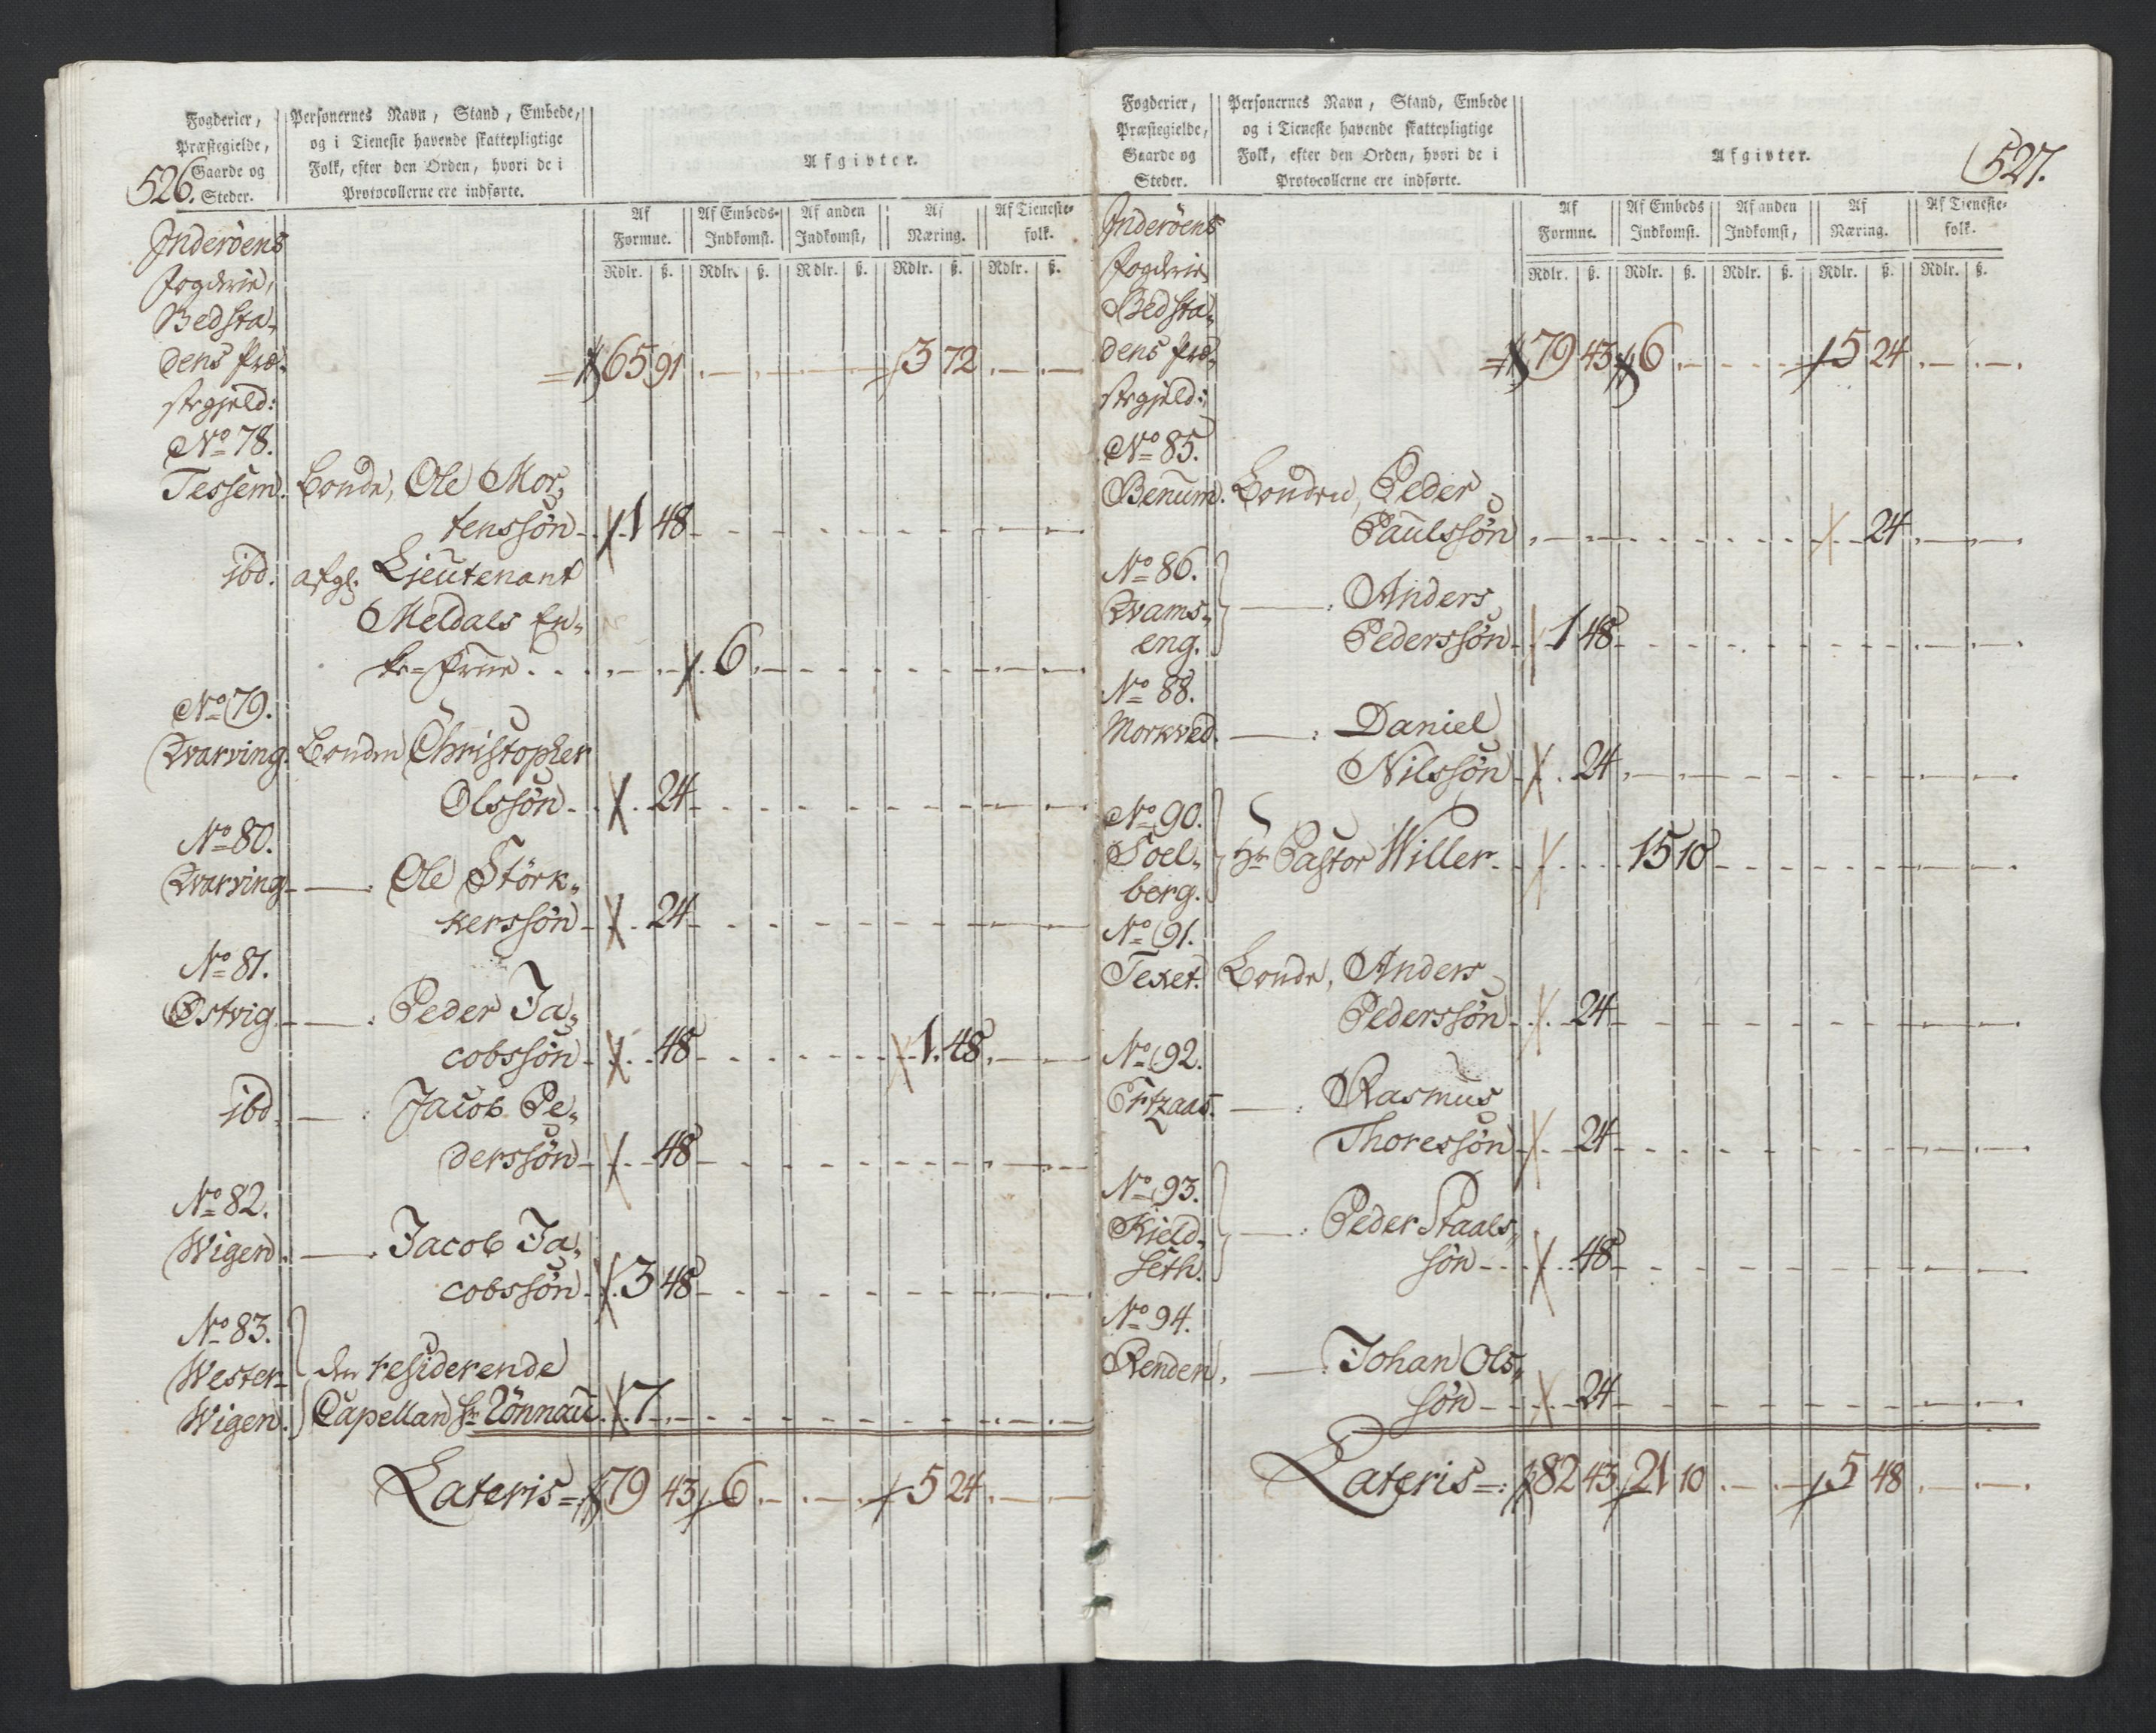 526.
Fogderier,
Præstegielde,
Gaarde og
Steder.
Personernes Navn, Stand, Embede,
og i Tieneste havende skattepligtige
Folk, efter den Orden, hvori de i
Protocollerne ere indførte.
Afgivter.
Af Formue. Af Embeds-Indkomst. Af anden Indkomst, Af Næring. Af Tieneste-folk.
Rdlr. ß. Rdlr. ß. Rdlr. ß. Rdlr. ß. Rdlr. ß.
Inderöens
Fogderie,
Bedsta-
dens Præ- 65 91 3 72
stegjeld:
No 78.
Tessem. Bonde, Ole Mor-
tenssön 1 48
ibd. afg. Lieutenant
Meldals En-
ke-Frue 6
No 79.
Qvarving. Bonden Christopher
Olssön 24
No 80.
Qvarving — Ole Störk-
kerssön 24
No 81.
Østvig — : Peder Ja-
cobssön 48 1 48
ibd. — : Jacob Pe-
derssön 48
No 82.
Wigen — : Jacob Ja-
cobssön 3 48
No 83.
Wester- den residerende
Wigen. Capellan Hr Lönnau 7
Lateris = 79 43 6 5 24
527.
Fogderier,
Præstegielde,
Gaarde og
Steder.
Personernes Navn, Stand, Embede
og i Tieneste havende skattepligtige
Folk, efter den Orden, hvori de i
Protocollerne ere indførte.
Afgivter.
Af Formue. Af Embeds Indkomst. Af anden Indkomst, Af Næring. Af Tieneste-folk.
Rdlr. ß. Rdlr. ß. Rdlr. ß. Rdlr. ß. Rdlr. ß.
Inderöens
Fogderie
Bedsta-
dens Præ- 79 43 6 5 24
stegjeld:
No 85.
Benum. Bonden, Peder
Paulssön 24
No 86.
Qvams- — : Anders
eng. Pederssön 1 48
No 88.
Morkved. — : Daniel
Nilssön 24
No 90.
Soel- Hr Pastor Willer 15 10
berg.
No 91.
Texet. Bonde, Anders
Pederssön 24
No 92.
— : Rasmus
Thoressön 24
No 93.
Kield- — : Peder Staals-
seth. sön 48
No 94.
Renden, — : Johan Ols-
sön 24
Lateris = 82 43 21 10 5 48